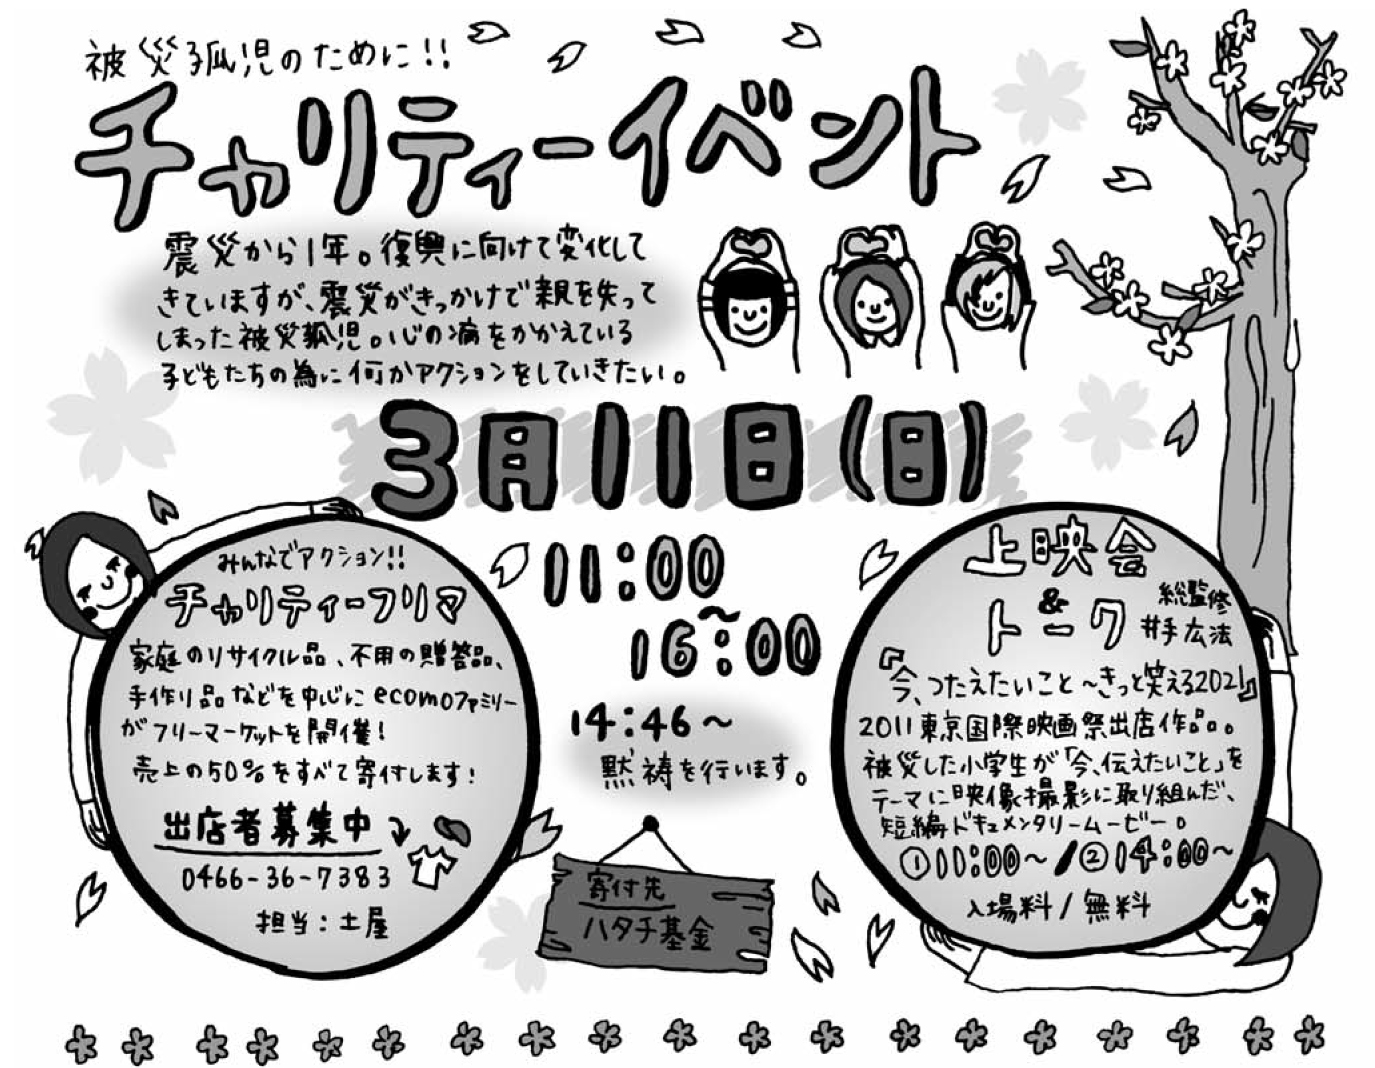 被災孤児のために!!
チャリティーイベント
震災から1年。復興に向けて変化して
きていますが、震災がきっかけで親を失って
しまった被災孤児。心の病をかかえている
子どもたちの為に何かアクションをしていきたい。
3月11日(日)
11:00
~
16:00
14:46~
黙祷を行います。
寄付先
ハタチ基金
みんなでアクション!!
チャリティーフリマ
家庭のリサイクル品、不用の贈答品、
手作り品などを中心にecomoファミリー
がフリーマーケットを開催!
売上の50%をすべて寄付します!
出店者募集中
0466-36-7383
担当:土屋
上映会
&
トーク
総監修
井手広法
『今、つたえたいこと~きっと笑える2021』
2011東京国際映画祭出店作品。
被災した小学生が「今、伝えたいこと」を
テーマに映像撮影に取り組んだ、
短編ドキュメンタリームービー。
①11:00~/②14:00~
入場料/無料